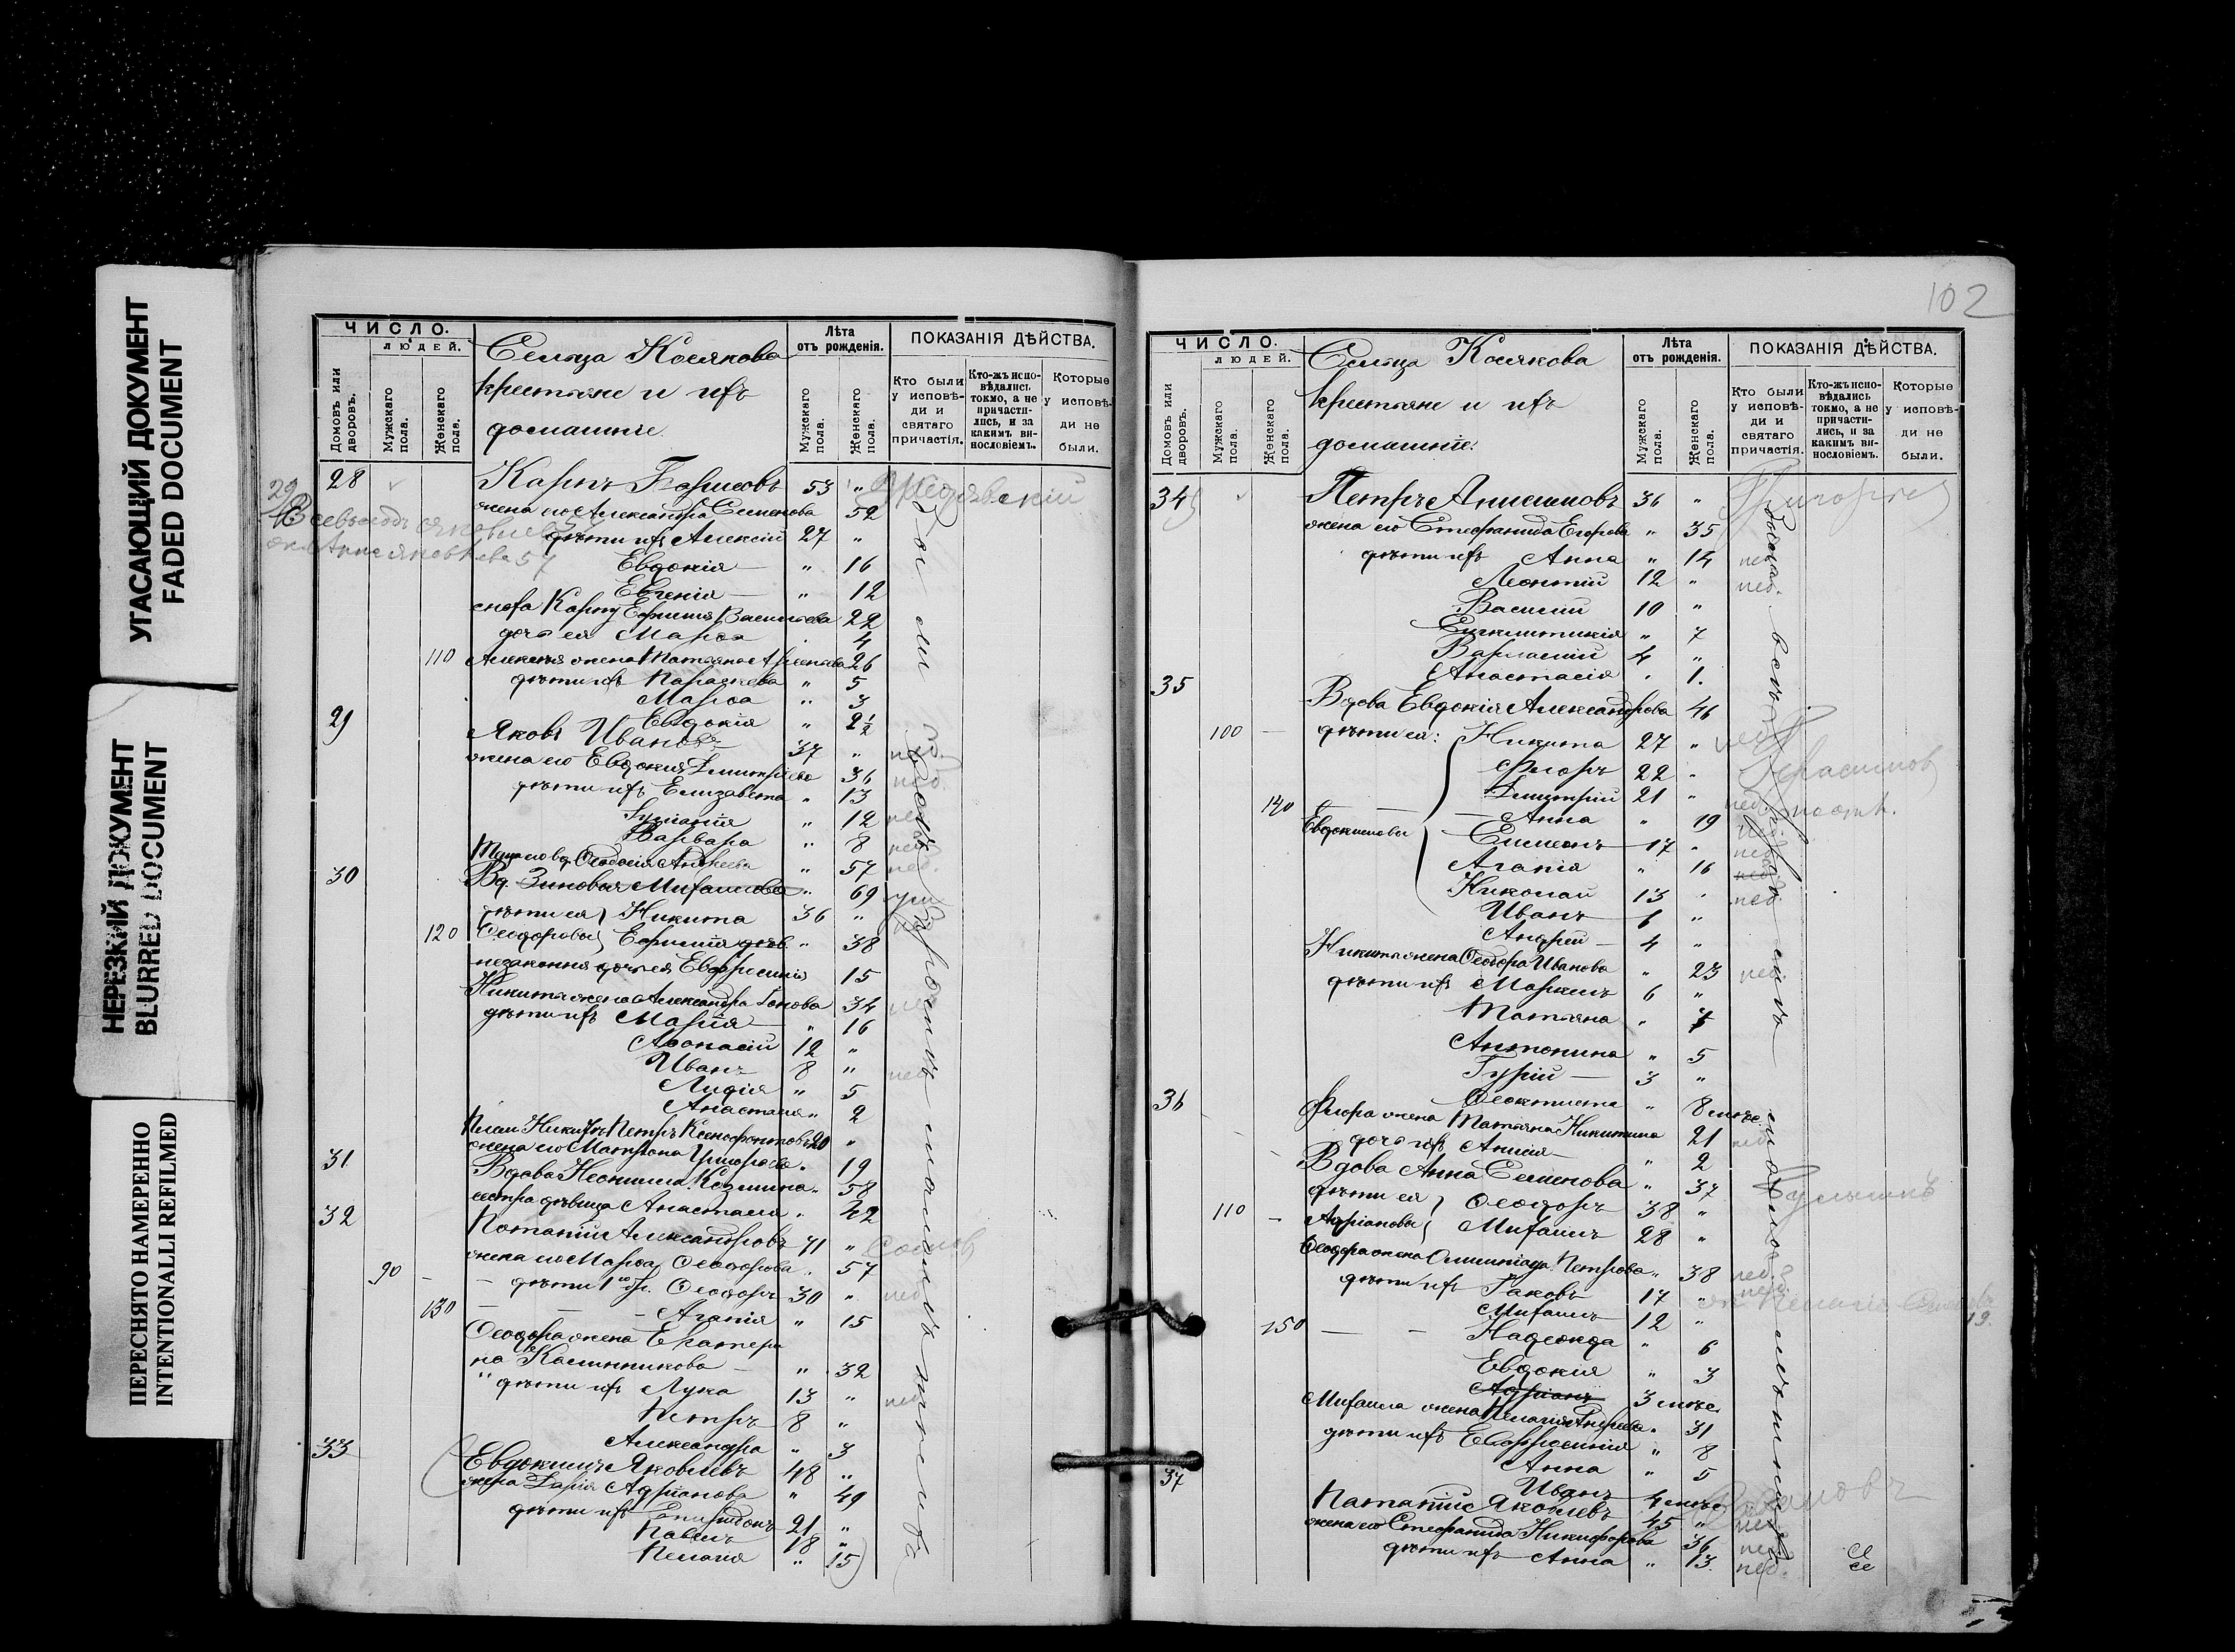 УГАСАЮЩИЙ ДОКУМЕНТ
FADED DOCUMENT
НЕРЕЗКИЙ ДОКУМЕНТ
BLURRED DOCUMENT
ПЕРЕСНЯТО НАМЕРЕННО
INTENTIONALLI REFILMED
ЧИСЛО.
людей.
Домовъ или дворовъ.
Мужскаго пола.
Женскаго пола.
Сельца Косякова
крестьяне и ихъ
домашніе.
Лѣта
отъ рожденія.
Мужскаго пола.
Женскаго пола.
ПОКАЗАНІЯ ДѢЙСТВА.
Кто были у исповѣди и святаго причастія.
Кто-жъ исповѣдались токмо, а не причастились, и за какимъ винословіемъ.
Которые у исповѣди не были.
28 Карпъ Борисовъ 53 "
жена его Александра Семенова 52
дѣти ихъ Алексій 27 "
Евдокія " 16
Евгенія " 12
сноха Карпу Евфимія Васильева 22
дочь ея Марѳа 4
110 Алексѣя жена Татьяна 26
дѣти ихъ Параскева " 5
Марѳа " 3
Евдокія " 2½
29 Яковъ Ивановъ 37 "
жена его Евдокія Димитріева 36 нед.
дѣти ихъ Елизавета " 13
" 12
Варвара " 8
Ѳеодосія Андреева " 57 нед.
30 Вд. Зиновья Михайлова " 69
дѣти ея Никита 36 "
120 Ѳеодоровы Евфимія дѣв. " 38
незаконная дочь ея Евфросинія 15
Никиты жена Александра 34
дѣти ихъ Марія " 16
Аѳанасій 12 "
Иванъ 8 "
Лидія " 5
Анастасія " 2
Петръ Ксенофонтовъ 20 "
жена его Матрона Григорьева " 19
31 Вдова Неонила Козмина " 58
сестра дѣвица Анастасія " 42
32 Потапій Александровъ 71 "
жена его Марѳа Ѳеодорова " 57
90 дѣти 1го бр. Ѳеодоръ 30 " нед
130 Агапія " 15
Ѳеодора жена Екатери
на Калинникова " 32
" дѣти ихъ Лука 13 "
Петръ 8 "
Александра " 3
33 Евдокимъ Яковлевъ 48 "
жена Дарія Адріанова " 49
дѣти ихъ Спиридонъ 21 "
Павелъ 18 "
Пелагія " 15
102
ЧИСЛО.
людей.
Домовъ или дворовъ.
Мужскаго пола.
Женскаго пола.
Сельца Косякова
крестьяне и ихъ
домашніе:
Лѣта
отъ рожденія.
Мужскаго пола.
Женскаго пола.
ПОКАЗАНІЯ ДѢЙСТВА.
Кто были у исповѣди и святаго причастія.
Кто-жъ исповѣдались токмо, а не причастились, и за какимъ винословіемъ.
Которые у исповѣди не были.
34 Петръ Анисимовъ 36 "
жена его Стефанида Егорова " 35
дѣти ихъ Анна " 14 нед
Леонтій 12 " нед.
Василій 10 "
" 7
Варлаамій 4 "
Анастасія " 1.
35 Вдова Евдокія Александрова 46
100 дѣти ея: Никита 27 "
Флоръ 22 "
Димитрій 21 "
140 Анна " 19
Евдокимовы Симеонъ 17 "
Агапія " 16
Николай 13 " нед.
Иванъ 6 "
Андрей 4 "
Никиты жена Ѳеодора Иванова " 23 нед
дѣти ихъ Маркелъ 6 "
Татьяна "
Антонина " 5
Гурій 3 "
Ѳеоктиста " 8 мѣс.
36 Флора жена Татьяна Никитина 21
дочь ихъ Анисія " 2
Вдова Анна Семенова " 37
дѣти ея Ѳеодоръ 38 "
110 Адріановы Михаилъ 28 "
Ѳеодора жена Олимпіада Петрова " 38 нед.
дѣти ихъ Іаковъ 17 "
Михаилъ 12 "
150 Надежда " 6
Евдокія " 3
Адріанъ 3 мѣс.
Михаила жена Пелагія Андреева " 31
дѣти ихъ Евфросинія " 8
Анна " 5
Иванъ 4 мѣс.
37 Потапій Яковлевъ 45 "
жена его Стефанида Никифорова 36
дѣти ихъ Анна " 13. нед.